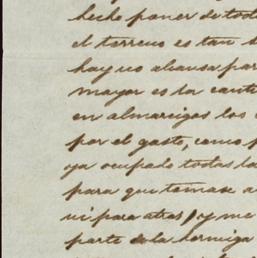 hecho poner de tod
el terreno es tan
hay us alcansa par
mayor es la canti
en almacigos los
por el gasto, como p
ya ocupado todas la
para que tomase a
ni para atras, y me
parte de la hormiga